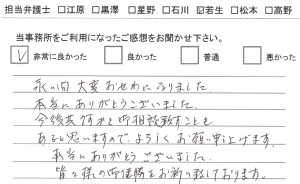 担当弁護士 □江原 □黒澤 □星野 □石川 ☑若生 □松本 □高野
当事務所をご利用になったご感想をお聞かせ下さい。
☑ 非常に良かった □ 良かった □ 普通 □ 悪かった
永い間大変おせわになりました
本当にありがとうございました。
今後共 御相談致すことも
あると思いますので、よろしくお願い申し上げます。
本当にありがとうございました。
皆々様の御健勝をお祈り致しております。